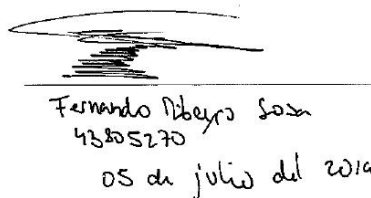 Fernando Ribeyro Sosa
43805270
05 de julio del 2019